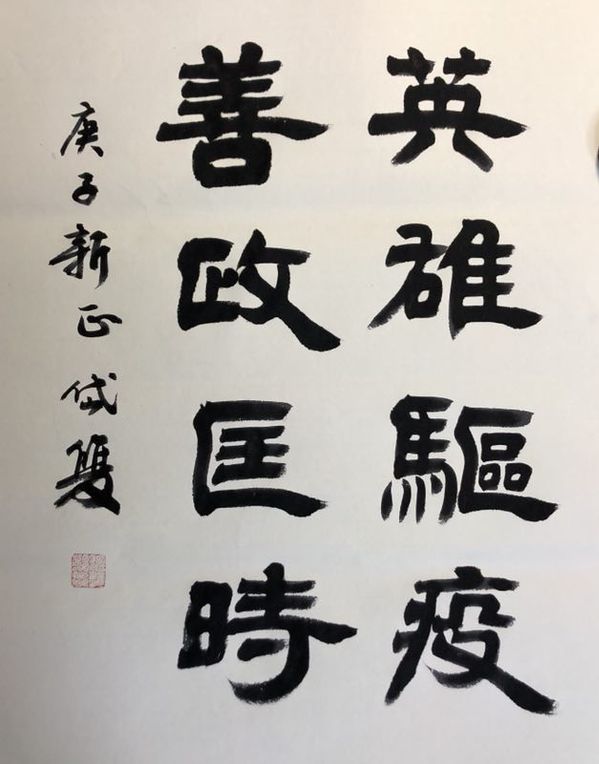 英雄驅疫
善政匡時
庚子新正 岱雙